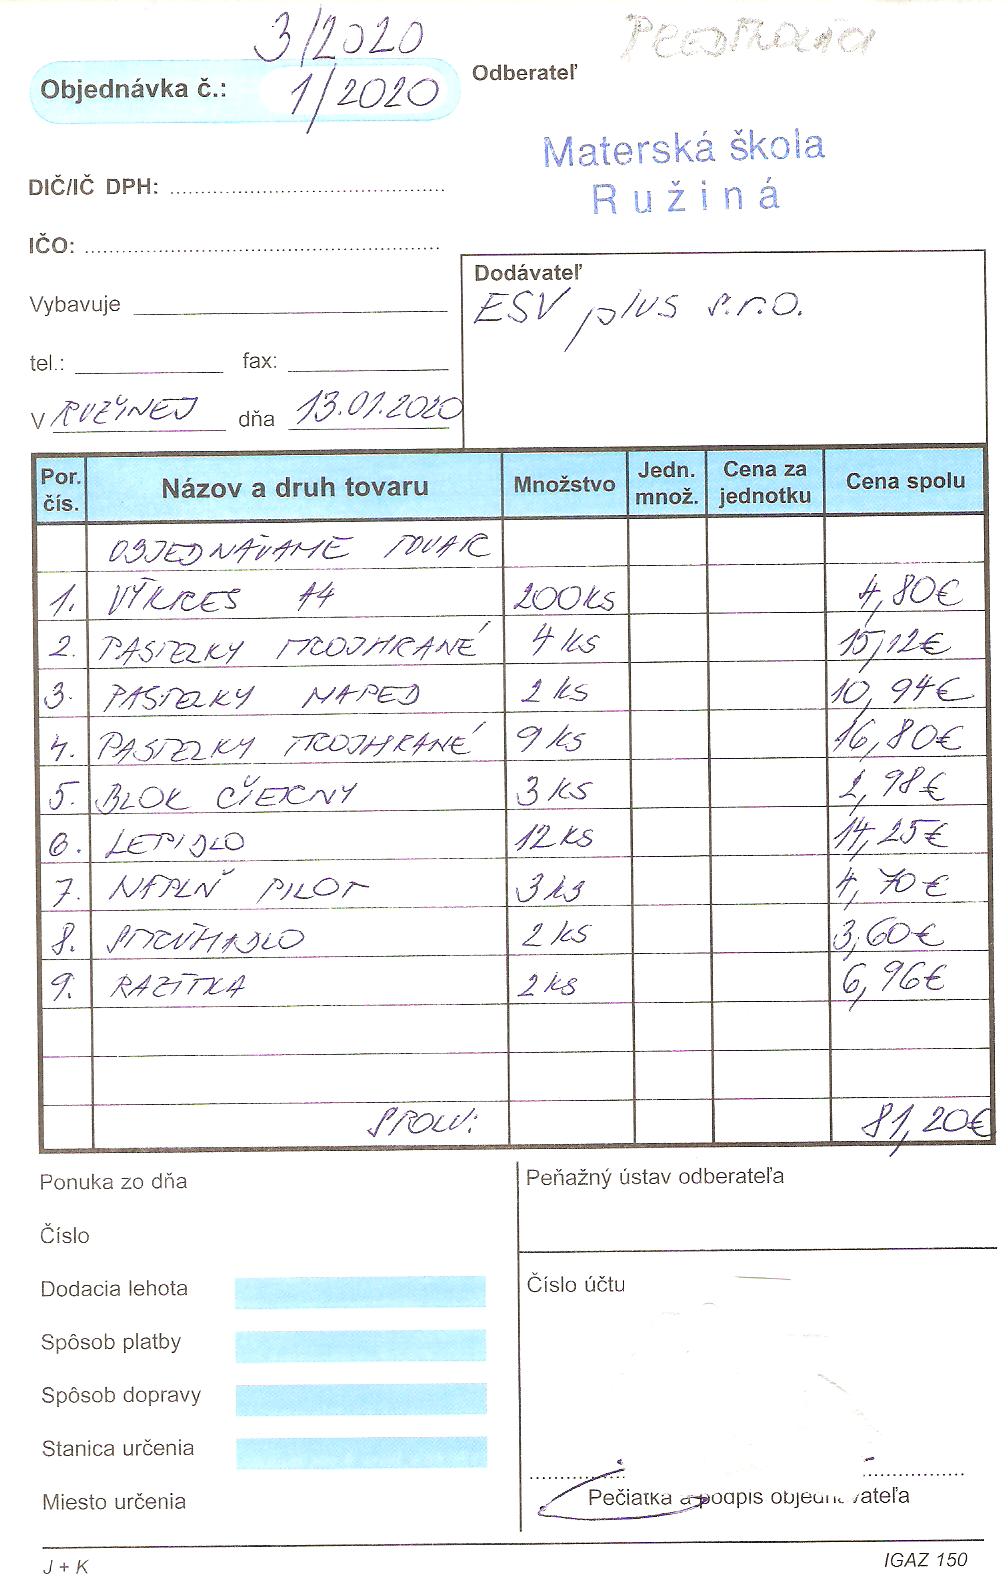 3/2020
Objednávka č.: 1/2020
Odberateľ
Materská škola
Ružiná
DIČ/IČ DPH:
IČO:
Vybavuje
tel.: fax:
V RUŽINEJ dňa 13.01.2020
Dodávateľ
ESV plus s.r.o.
Por. čís. Názov a druh tovaru Množstvo Jedn. množ. Cena za jednotku Cena spolu
OBJEDNÁVAME TOVAR
1. VÝKRES A4 200KS 4,80€
2. PASTELKY TROJHRANÉ 4 KS 15,12€
3. PASTELKY MAPED 2 KS 10,94€
4. PASTELKY TROJHRANÉ 9 KS 16,80€
5. BLOK ČIERNY 3 KS 2,98€
6. LEPIDLO 12 KS 14,25€
7. NÁPLŇ PILOT 3 KS 4,70€
8. STRÚHADLO 2 KS 3,60€
9. RAZÍTKA 2 KS 6,96€
SPOLU: 81,20€
Ponuka zo dňa
Číslo
Dodacia lehota
Spôsob platby
Spôsob dopravy
Stanica určenia
Miesto určenia
Peňažný ústav odberateľa
Číslo účtu
Pečiatka a podpis objednávateľa
J + K
IGAZ 150